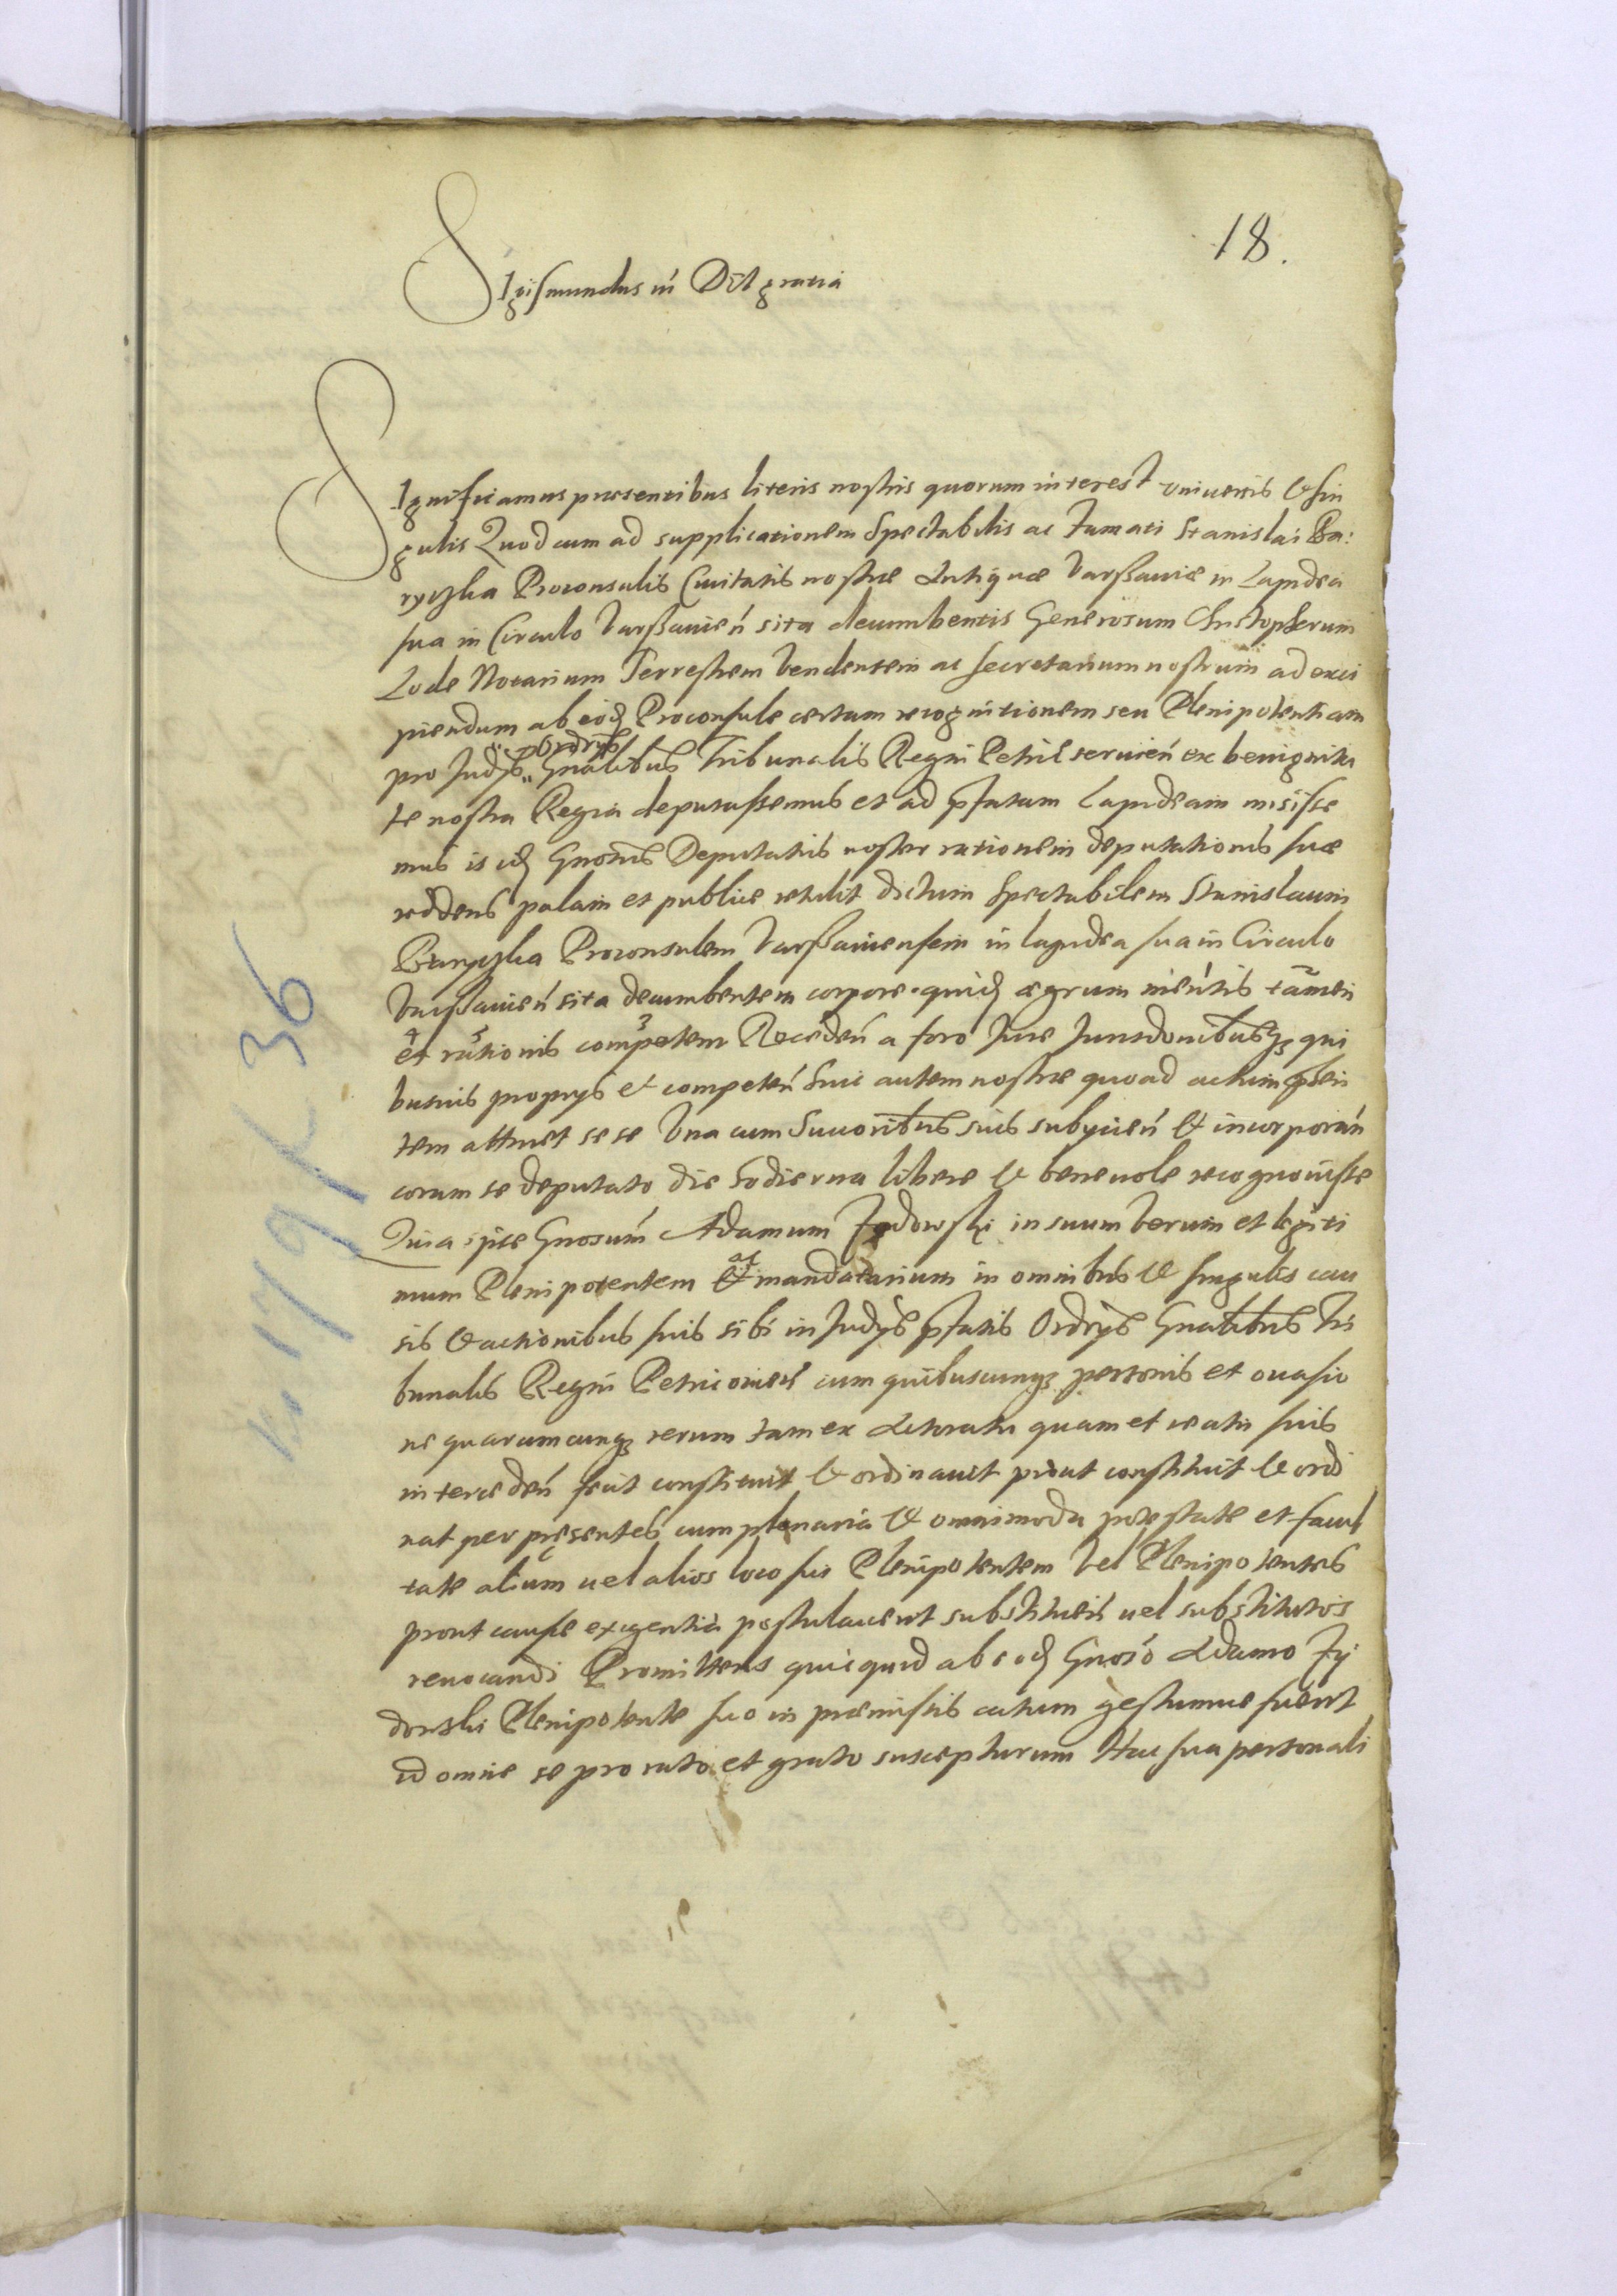 18.
Sigismundus iii Dei gratia
Significamus præsentibus literis nostris quorum interest vniuersis & sin
gulis Quod cum ad supplicationem Spectabilis ac Famati Stanislai Ba:
ryczka Proconsulis Ciuitatis nostræ Antiquæ Varßauiæ in Lapidea
sua in Circulo Varßauień sita decumbentis Generosum Christopherum
Lode Notarium Terrestrem Vendensem ac secretarium nostrum ad exci
piendum ab eod Proconsule certam recognitionem seu Plenipotentiam
pro Judijs Ordrijs Gnalibus Tribunalis Regni Petri seruień ex benignita
te nostra Regia deputassemus et ad pfatam Lapideam misisse
mus is id Gnosus Deputatus noster rationem deputationis suæ
reddens palam et publice retulit dictum Spectabilem Stanislaum
Baryczka Proconsulem Varßauiensem in lapidea sua in Circulo
Varßauień sita decumbentem corpore quid ægrum mentis tamen
et rationis compotem Recedeń a foro Jure Jurisdonibusq qui
busuis proprijs & competeń Suic autem nostræ quoad actum psen
tem attinet se se Vna cum Succoribus suis subijcień & incorporań
coram se deputato die hodierna libere & beneuole recognouisse
Quia ipse Gnosum Adamum Jydowski in suum Verum et legiti
mum Plenipotentem ac mandatarium in omnibus & singulis cau
sis & actionibus suis sibi in Judijs pfatis Ordrijs Gnalibus Tri
bunalis Regni Petricouień cum quibuscunq personis et occasio
ne quarumcunq rerum tam ex Actoratu quam et reatu suis
intercedeń fecit constituit & ordinauit prout constituit & ordi
nat per præsentes cum plenaria & omnimoda potestate et facul
tate alium uel alios loco sui Plenipotentem Vel Plenipotentes
prout causæ exigentia postulauerit substitueń uel substitutos
reuocandi Promittens quicquid ab eod Gnoso Adamo Jy
dowski Plenipotente suo in præmissis actum gestumue fuerit
id omne se pro rato et grato suscepturum Hac sua personali
K 179 K 36